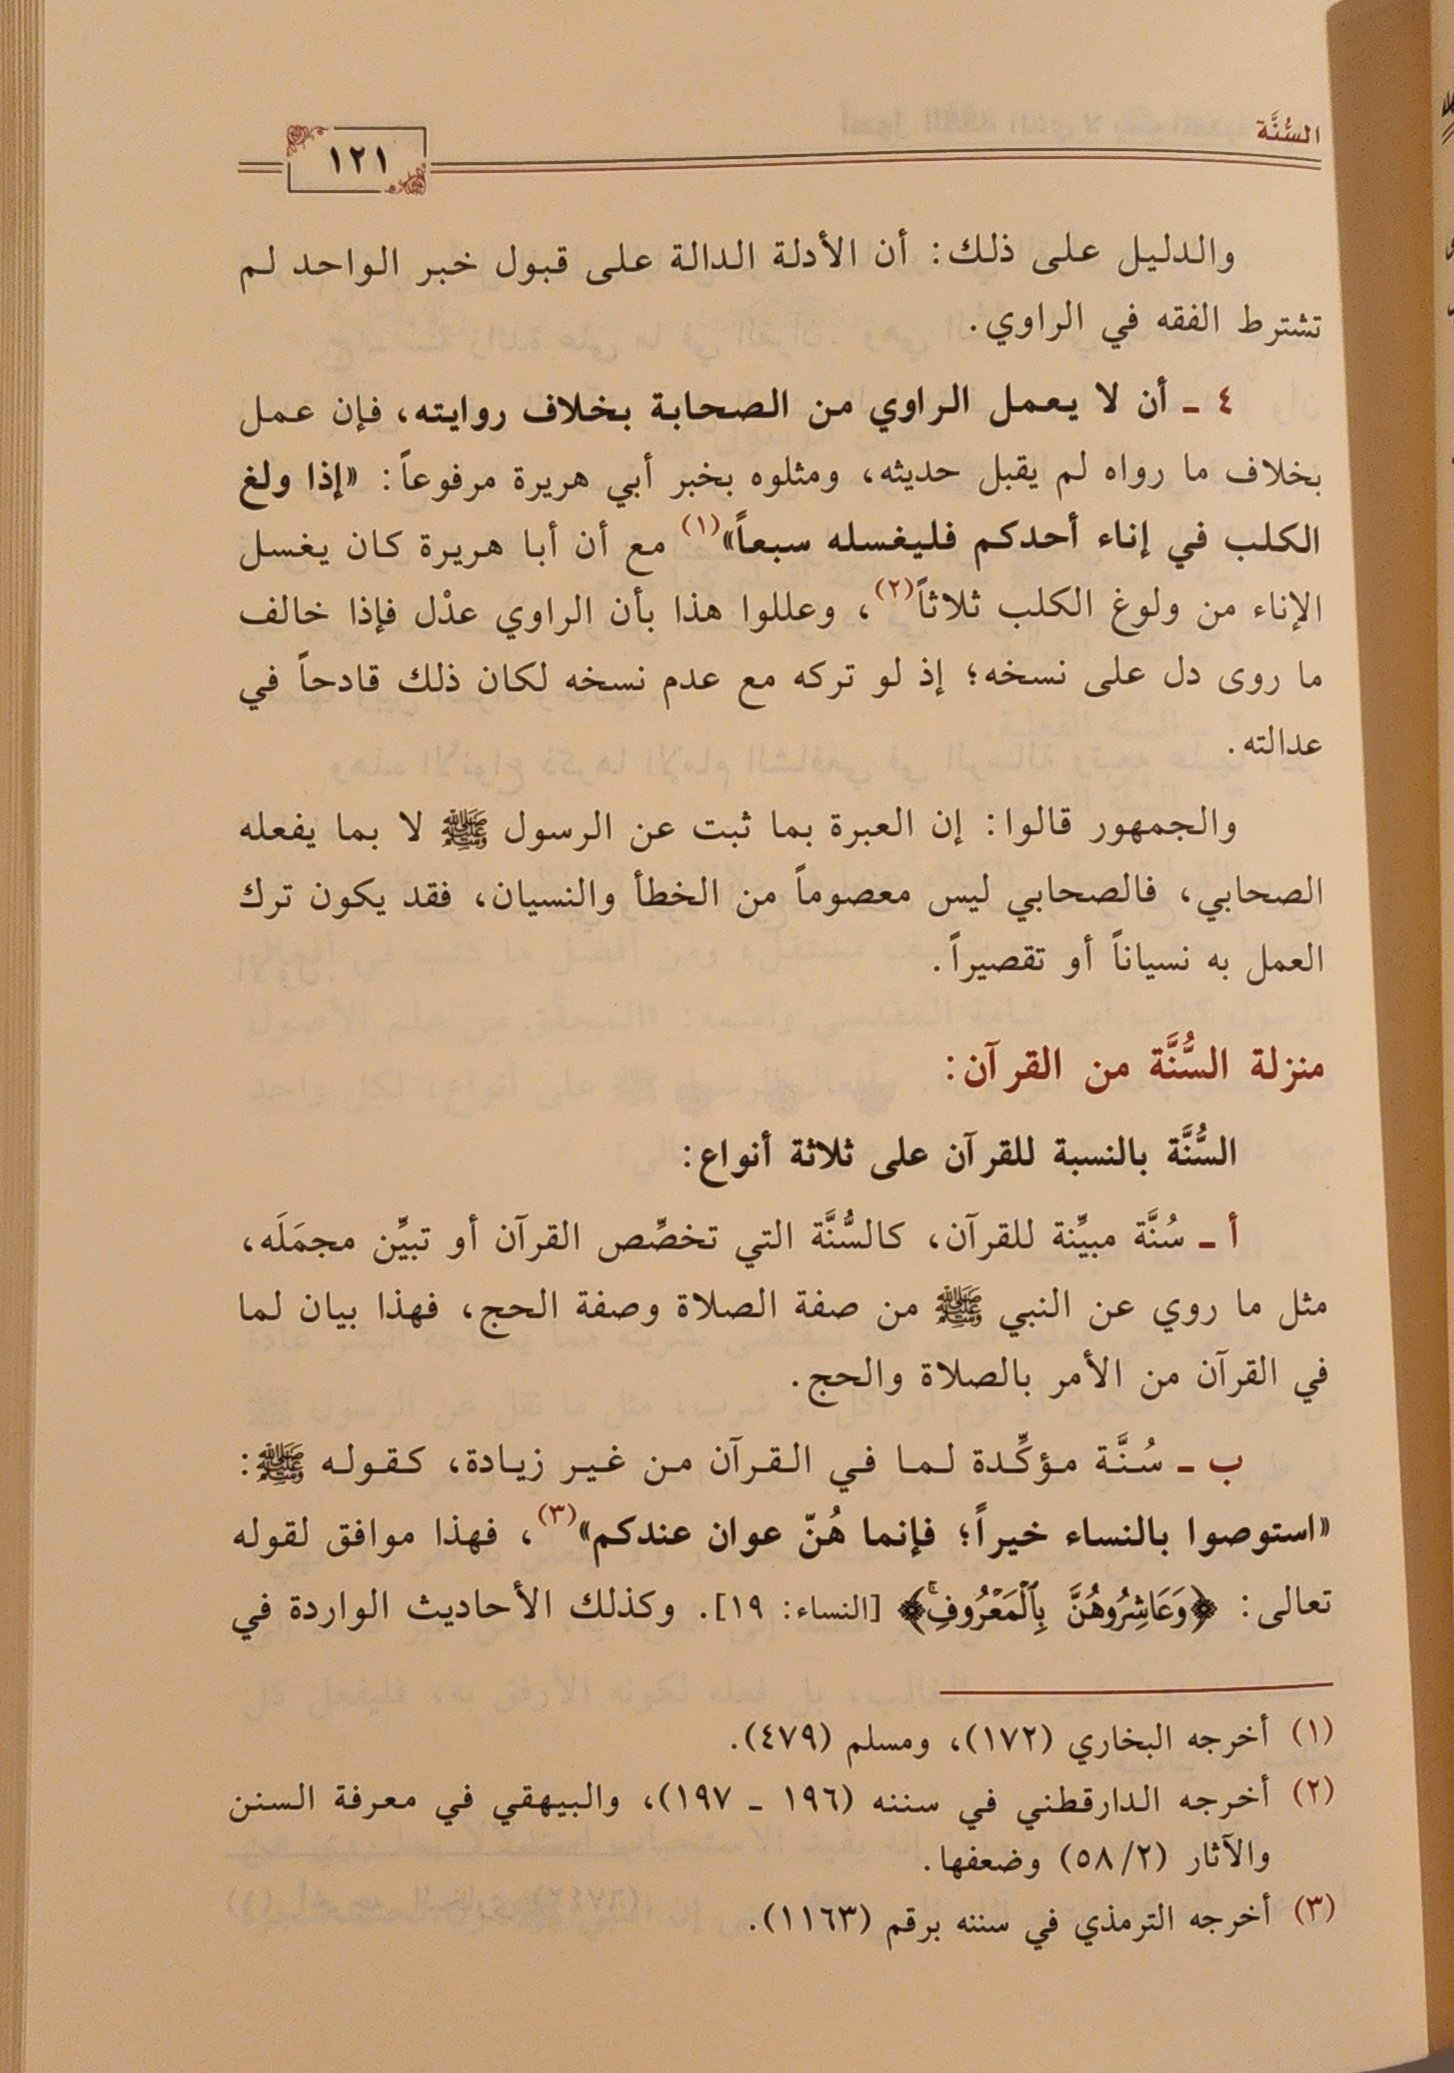 السُّنَّة
١٢١
والدليل على ذلك: أن الأدلة الدالة على قبول خبر الواحد لم
تشترط الفقه في الراوي.
٤ ـ أن لا يعمل الراوي من الصحابة بخلاف روايته، فإن عمل
بخلاف ما رواه لم يقبل حديثه، ومثلوه بخبر أبي هريرة مرفوعاً: «إذا ولغ
الكلب في إناء أحدكم فليغسله سبعاً»(١) مع أن أبا هريرة كان يغسل
الإناء من ولوغ الكلب ثلاثاً(٢)، وعللوا هذا بأن الراوي عدْل فإذا خالف
ما روى دل على نسخه؛ إذ لو تركه مع عدم نسخه لكان ذلك قادحاً في
عدالته.
والجمهور قالوا: إن العبرة بما ثبت عن الرسول ﷺ لا بما يفعله
الصحابي، فالصحابي ليس معصوماً من الخطأ والنسيان، فقد يكون ترك
العمل به نسياناً أو تقصيراً.
منزلة السُّنَّة من القرآن:
السُّنَّة بالنسبة للقرآن على ثلاثة أنواع:
أ ـ سُنَّة مبيِّنة للقرآن، كالسُّنَّة التي تخصِّص القرآن أو تبيِّن مجمَلَه،
مثل ما روي عن النبي ﷺ من صفة الصلاة وصفة الحج، فهذا بيان لما
في القرآن من الأمر بالصلاة والحج.
ب ـ سُنَّة مؤكِّدة لما في القرآن من غير زيادة، كقوله ﷺ:
«استوصوا بالنساء خيراً؛ فإنما هُنّ عوان عندكم»(٣)، فهذا موافق لقوله
تعالى: ﴿وَعَاشِرُوهُنَّ بِٱلْمَعْرُوفِۚ﴾ [النساء: ١٩]. وكذلك الأحاديث الواردة في
(١) أخرجه البخاري (١٧٢)، ومسلم (٤٧٩).
(٢) أخرجه الدارقطني في سننه (١٩٦ ـ ١٩٧)، والبيهقي في معرفة السنن
والآثار (٥٨/٢) وضعفها.
(٣) أخرجه الترمذي في سننه برقم (١١٦٣).